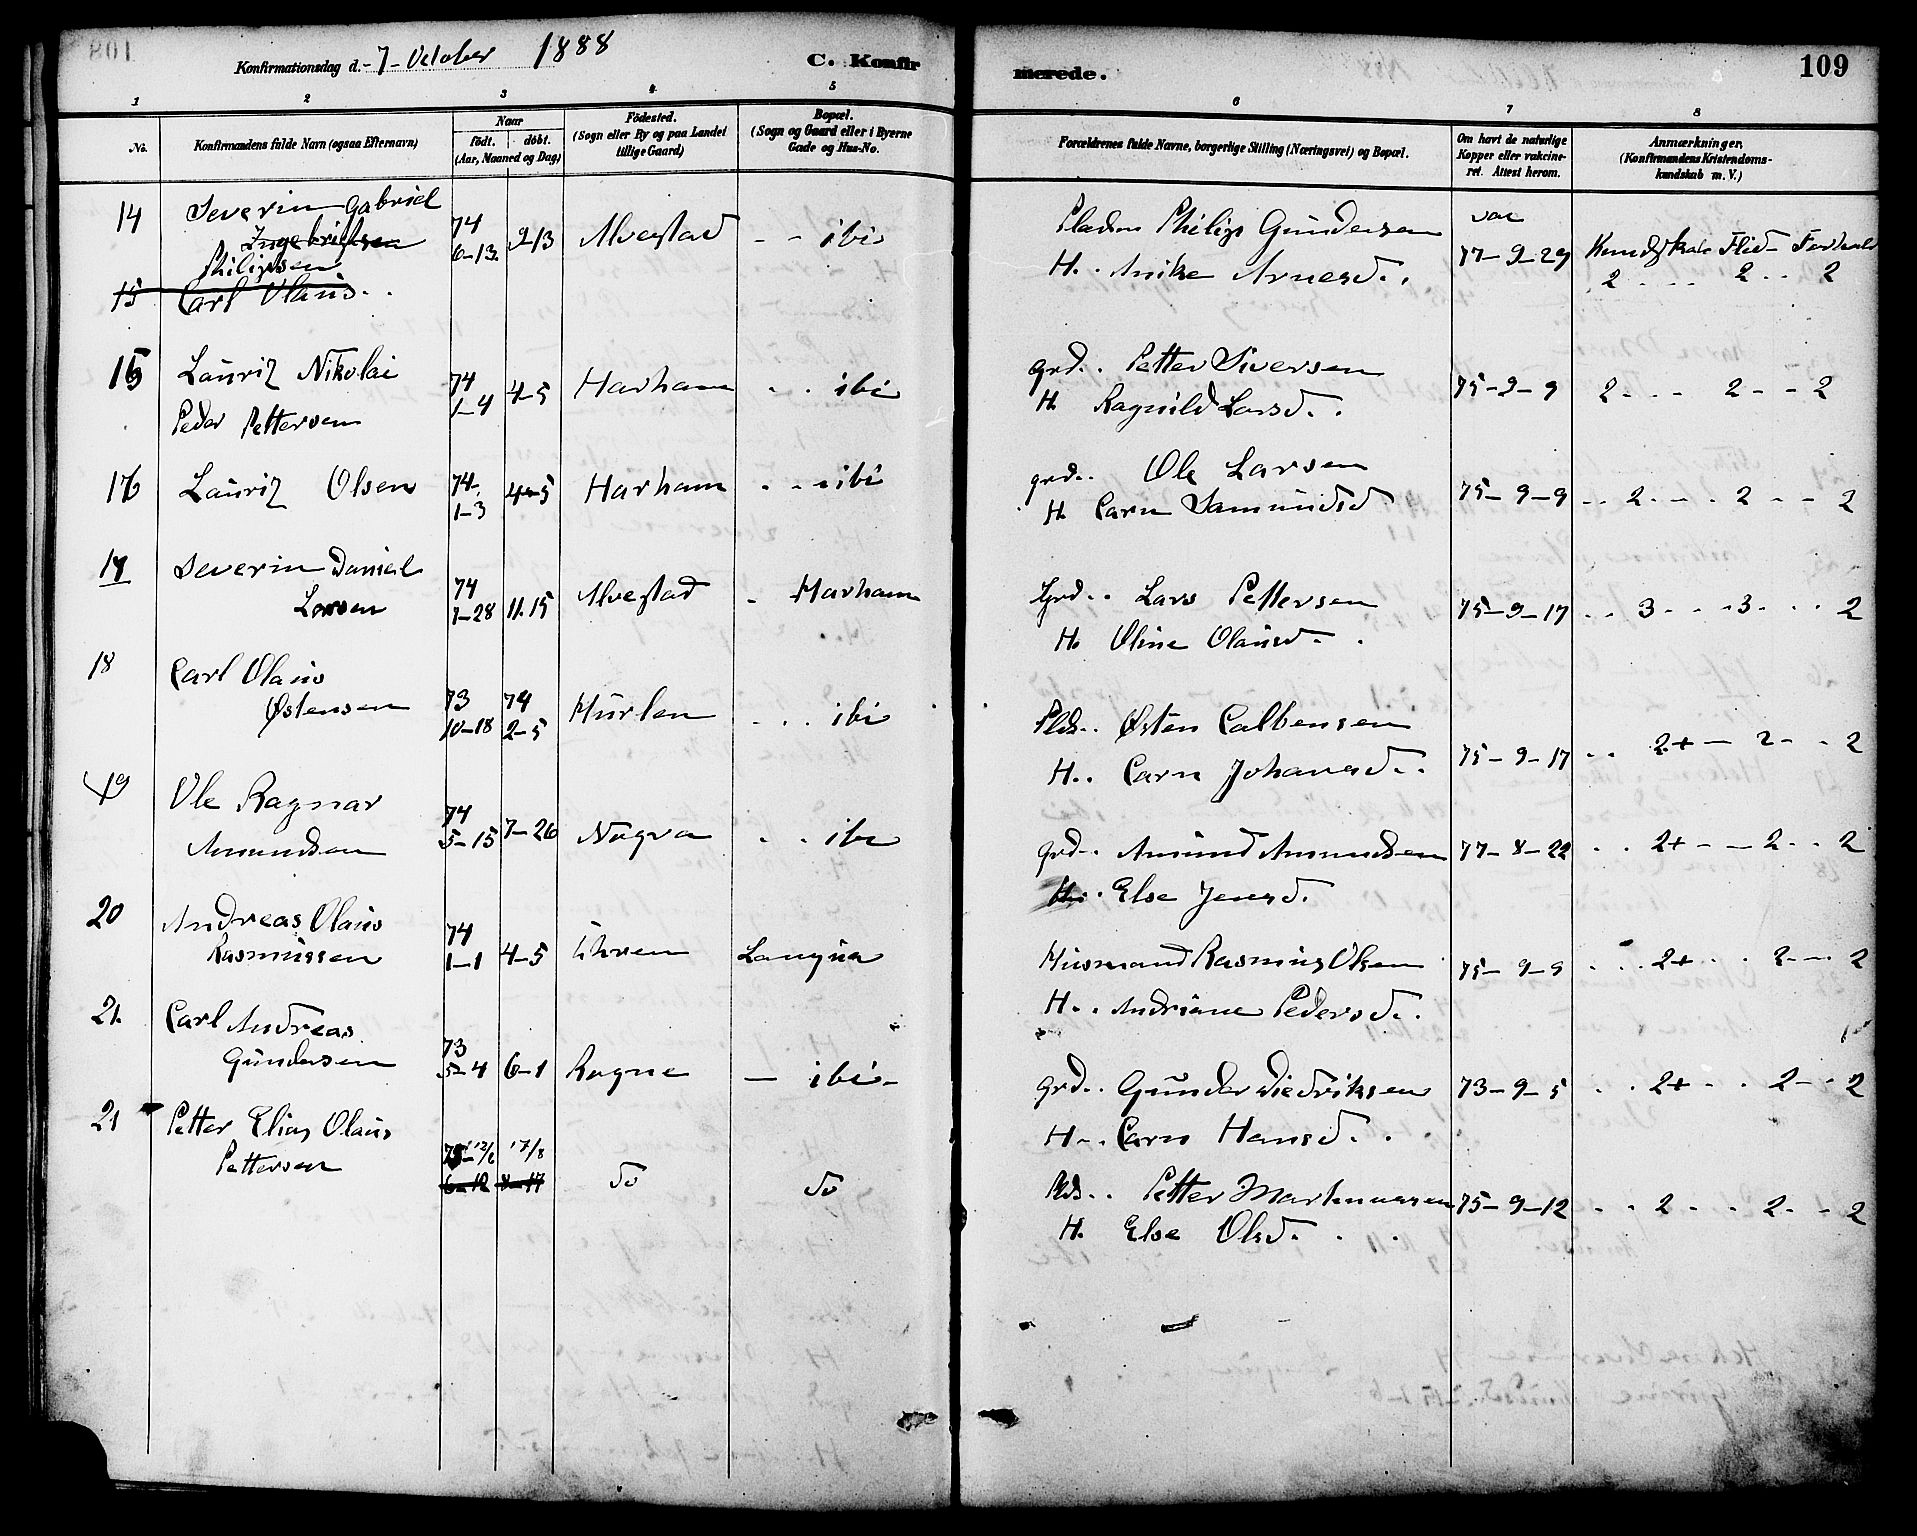 Konfirmationsdag d. 7 October 1888 C. Konfirmerede. 109
1 2 3 4 5 6 7 8
No.
Konfirmandens fulde Navn (ogsaa Efternavn)
Naar
født. døbt.
(Aar, Maaned og Dag)
Fødested.
(Sogn eller By og paa Landet
tillige Gaard)
Bopæl.
(Sogn og Gaard eller i Byerne
Gade og Hus-No.
Forældrenes fulde Navne, borgerlige Stilling (Næringsvei) og Bopæl.
Om havt de naturlige
Kopper eller vakcine-
ret. Attest herom.
Anmærkninger.
(Konfirmandens Kristendoms-
kundskab m. V.)
14 Severin Gabriel
Ingebrigtsen
Philipsen
74
6-13 9/13 Alvestad - - ibi
Philip Gundersen
H. Anike Arnesd.
vac
77-9-29
Kundskab Flid
2 2 2
15 Carl Olaus
15 Lauritz Nikolai
Peder Pettersen
74
1-4 4-5 Harham - - ibi
grd. Petter Siversen
H. Ragnild Larsd.
75-9-9 2 2 2
16 Lauritz Olsen
74
1-3 4-5 Harham - - ibi
grd. Ole Larsen
H. Carn Samundsd
75-9-9 2 2 2
17 Severin Daniel
Larsen
74
7-28 11.15 Alvestad - Harham
Grd. Lars Pettersen
H. Oline Olausd.
75-9-17 3 3 2
18 Carl Olaus
Østensen
73 74
10-18 2-5 Hurlen - - ibi
Plds. Østen Calbensen
H. Carn Johansd.
75-9-17 2+ 2 2
19 Ole Ragnar
Amundsen
74
5-15 7-26 Nogva - - ibi
grd. Amund Amundsen
H. Else Jensd.
77-8-22 2+ 2 2
20 Andreas Olaus
Rasmussen
74
1-1 4-5 Longva
Husmand Rasmus Olsen
H. Andriane Pedersd.
75-9-9 2+ 2 2
21. Carl Andreas
Gundersen
73
5-4 6-1 Rogne - ibi -
grd. Gunder Diedriksen
H. Carn Hansd.
73-9-5 2+ 2 2
21 Petter Elias Olaus
Pettersen
12/6 17/8
6-12 8-17 do do
Plds. Petter Martinussen
H. Else Olsd.
75-9-12 2 2 2